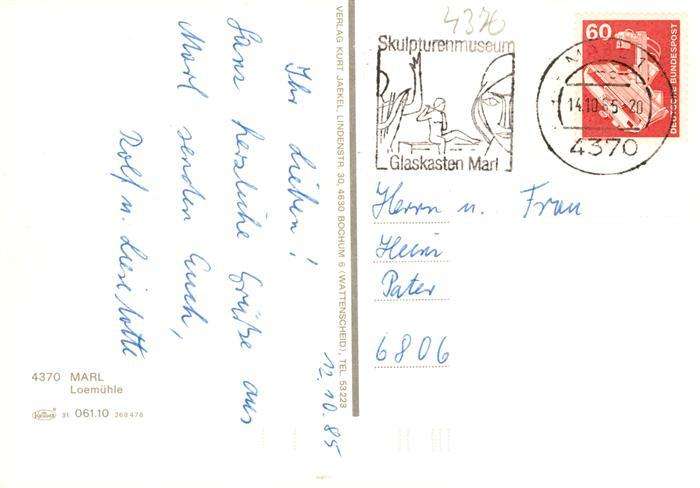 Ihr Lieben!
Ganz herzliche Grüße aus
Marl senden Euch,
Rolf u. Lieselotte
12.10.85
4370 MARL
Loemühle
Krüger 31 061.10 268476
VERLAG KURT JAEKEL, LINDENSTR. 30, 4630 BOCHUM 6 (WATTENSCHEID), TEL. 53223
4370
Skulpturenmuseum
Glaskasten Marl
MARL 1
14.10.85-20
4370
60
DEUTSCHE BUNDESPOST
Herrn u. Frau
Heini
Pater
6806